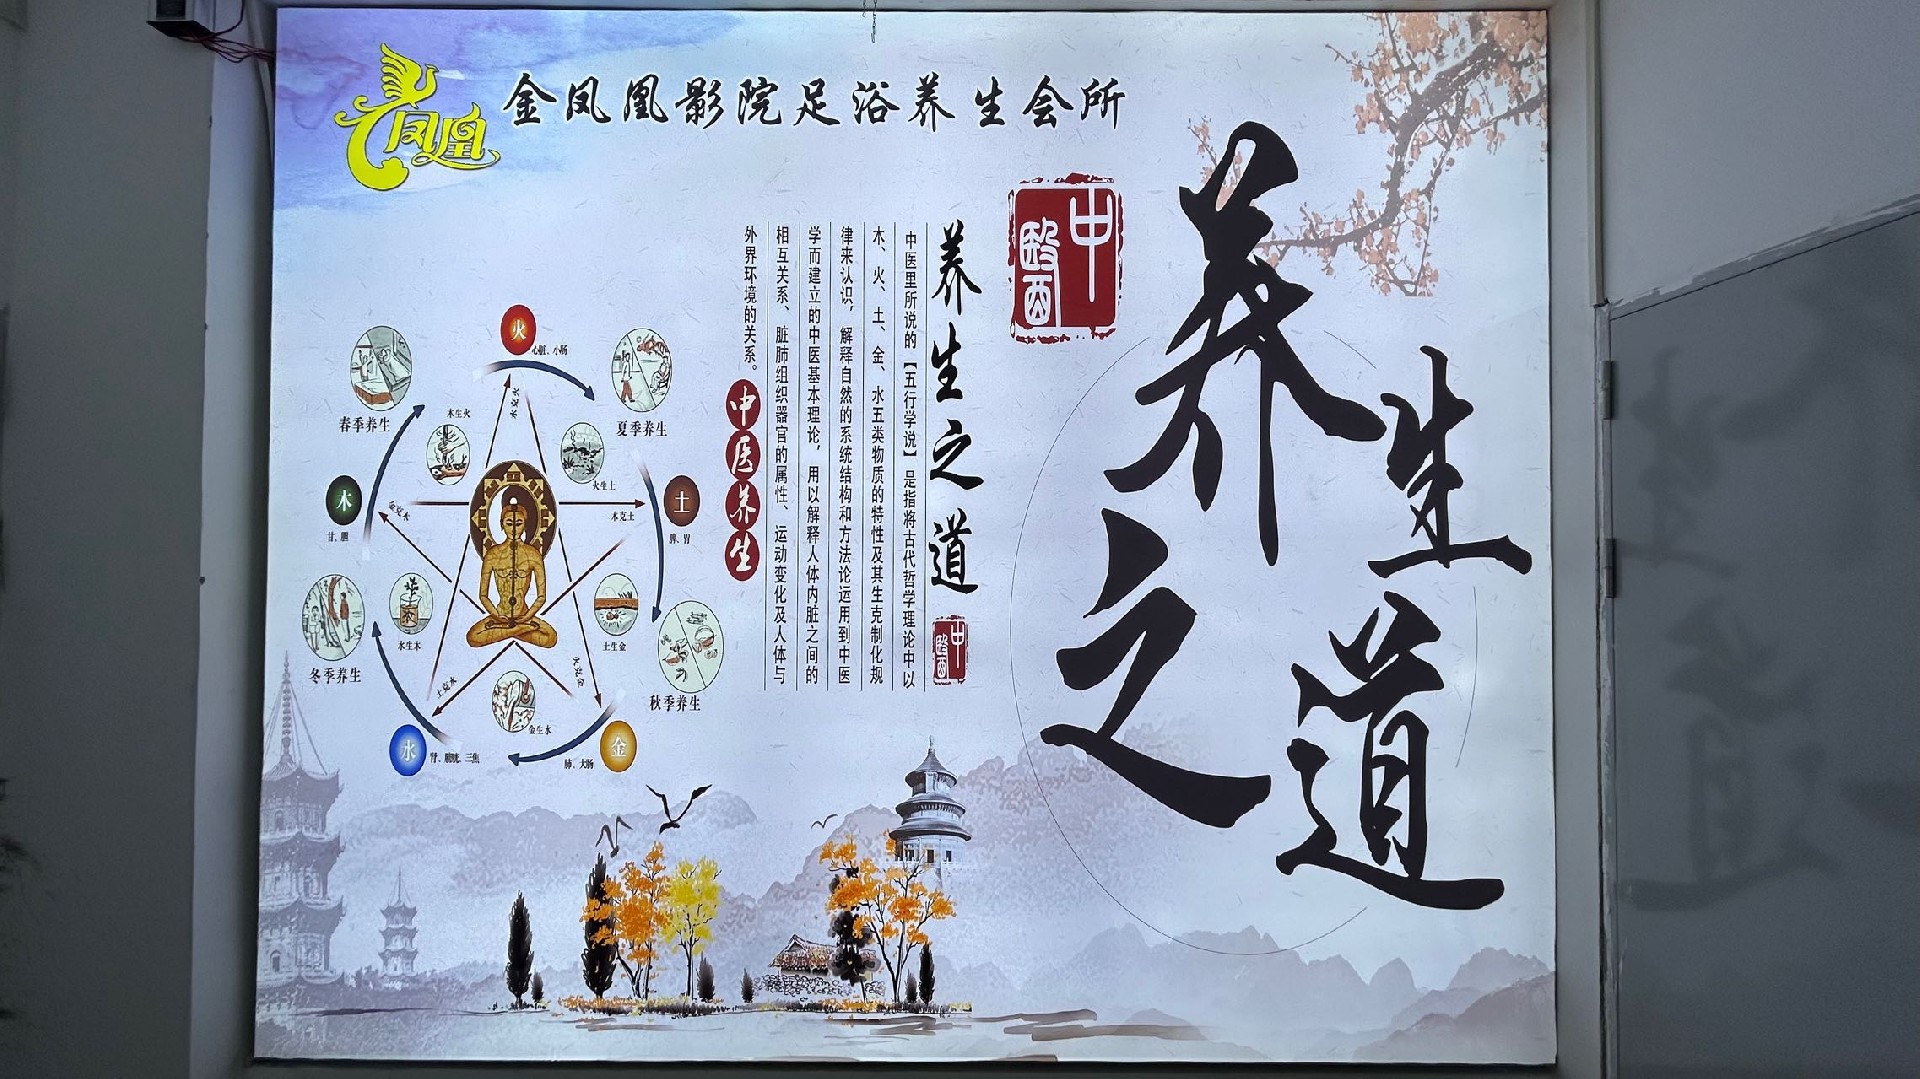 凤凰
金凤凰影院足浴养生会所
养生之道
中醫
养生之道
中醫
中医里所说的【五行学说】是指将古代哲学理论中以
木、火、土、金、水五类物质的特性及其生克制化规
律来认识，解释自然的系统结构和方法论运用到中医
学而建立的中医基本理论，用以解释人体内脏之间的
相互关系、脏肺组织器官的属性、运动变化及人体与
外界环境的关系。
中医养生
火
心脏、小肠
春季养生
夏季养生
木生火
火生土
木
甘、胆
土
脾、胃
金克木
木克土
水克火
冬季养生
水生木
土生金
秋季养生
土克水
金生水
水
肾、膀胱、三焦
金
肺、大肠